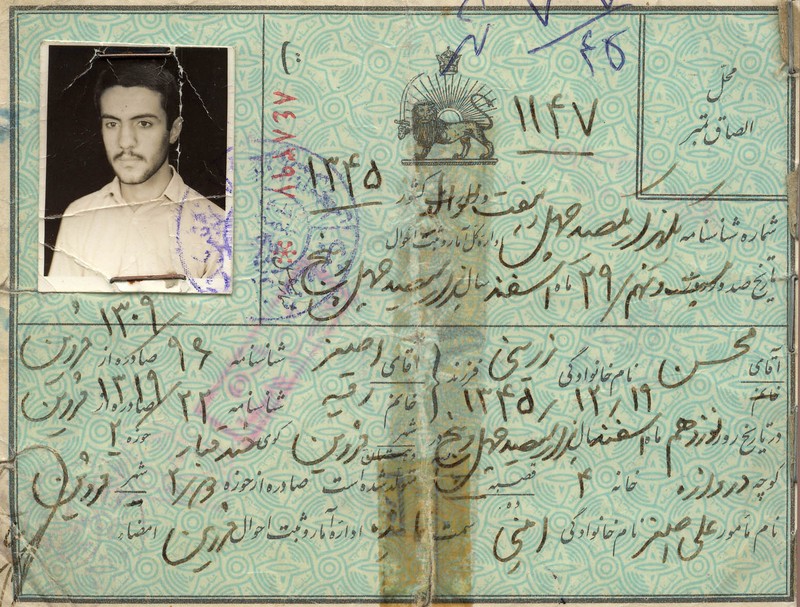 ۴۵
محل
الصاق تمبر
۱۱۴۷
۱۳۴۵
وزارت کشور
شماره شناسنامه یکهزار و یکصد و چهل و هفت
اداره کل آمار و ثبت احوال
تاریخ صدور بیست و نهم /۲۹ ماه اسفند سال یکهزار و سیصد و چهل و پنج
۱۳۰۹
آقای محسن نام خانوادگی زرینی فرزند آقای اصغر شناسنامه ۹۶ صادره از قزوین
خانم ۱۳۴۵/۱۲/۱۹ خانم رقیه شناسنامه ۲۲ صادره از قزوین
۱۳۱۹
در تاریخ روز نوزدهم ماه اسفند سال یکهزار و سیصد و چهل و پنج در شهر قزوین کوی حوزه ۲
کوچه دروازه خانه ۴ قصبه متولد شده است صادره از حوزه ۲ شهر قزوین
ده
نام مأمور علی اصغر نام خانوادگی امینی سمت اداره آمار و ثبت احوال قزوین امضاء